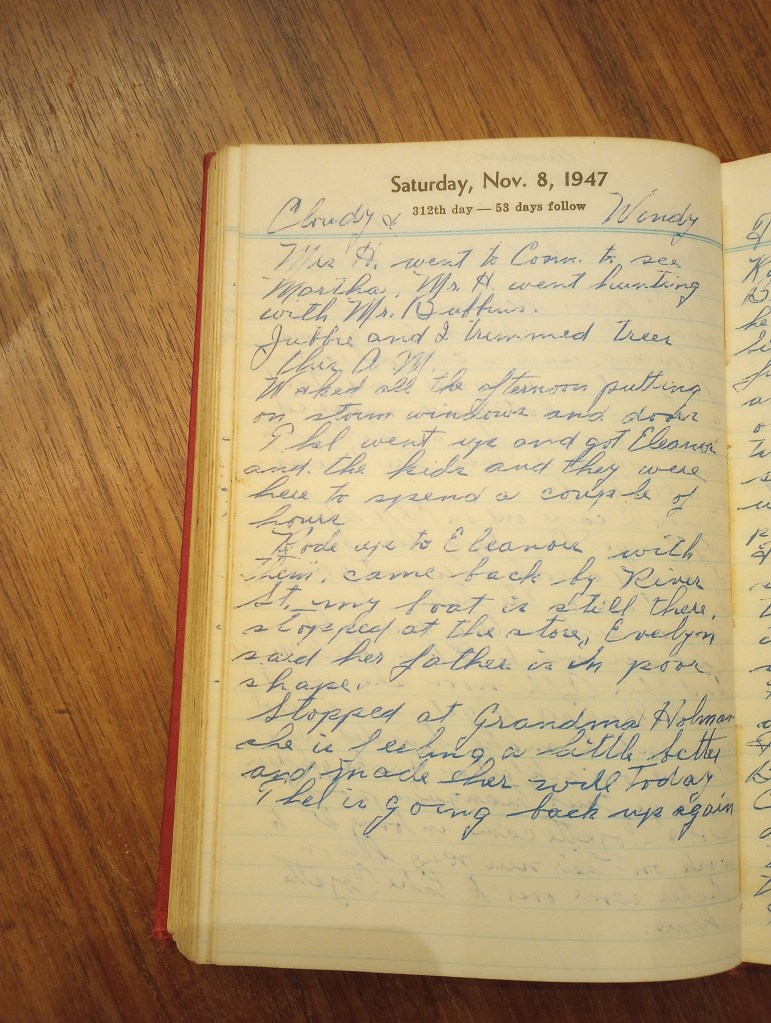 Saturday, Nov. 8, 1947
312th day — 53 days follow
Cloudy & Windy
Mrs H. went to Conn. to see
Martha. Mr H. went hunting
with Mr.
and I trimmed trees
this A. M.
all the afternoon putting
on storm windows and doors
Thel went up and got Eleanor
and the kids and they were
here to spend a couple of
hours
Rode up to Eleanors with
them. came back by River
St. my boat is still there.
stopped at the store, Evelyn
said her father is in poor
shape.
Stopped at Grandma Holman
she is feeling a little better
and made her will today
Thel is going back up again